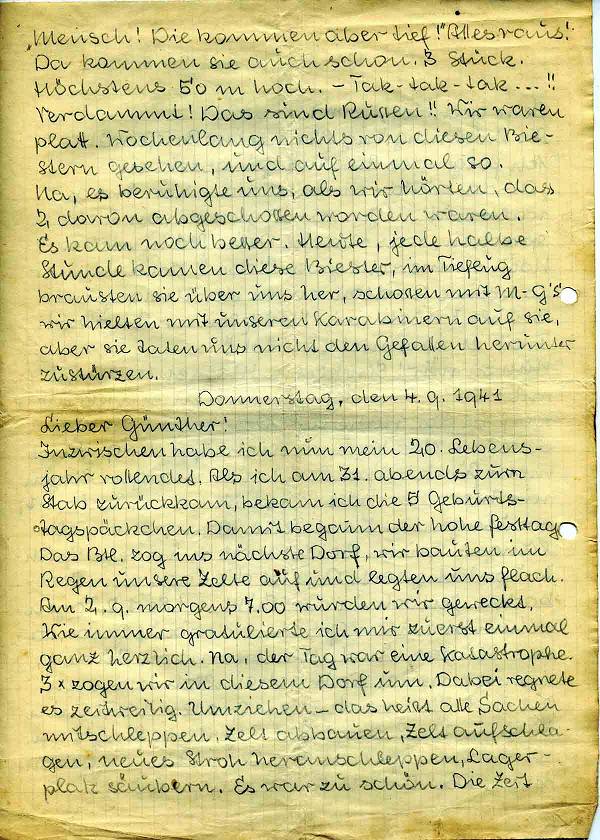 „Mensch! Die kommen aber tief!" "Alles raus!"
Da kommen sie auch schon. 3 Stück.
Höchstens 50 m hoch. – Tak-tak-tak ...!!
Verdammt! Das sind Russen!! Wir waren
platt. Wochenlang nichts von diesen Bie-
stern gesehen, und auf einmal so.
Na, es beruhigte uns, als wir hörten, das
2 davon abgeschossen worden waren.
Es kam noch besser. Heute, jede halbe
Stunde kamen diese Biester, im Tiefflug
brausten sie über uns her, schossen mit M-G's
wir hielten mit unseren Karabinern auf sie,
aber sie taten uns nicht den Gefallen herunter
zustürzen.
Donnerstag, den 4. 9. 1941
Lieber Günther!
Inzwischen habe ich nun mein 20. Lebens-
jahr vollendet. Als ich am 31. abends zum
Stab zurückkam, bekam ich die 5 Geburts-
tagspäckchen. Damit begann der hohe Festtag
Das Btl. zog ins nächste Dorf, wir bauten im
Regen unsere Zelte auf und legten uns flach.
Am 2. 9. morgens 7.00 wurden wir geweckt,
Wie immer gratulierte ich mir zuerst einmal
ganz herzlich. Na, der Tag war eine Katastrophe.
3 x zogen wir in diesem Dorf um. Dabei regnete
es zeitweilig. Umziehen – das heißt alle Sachen
mitschleppen, Zelt abbauen, Zelt aufschla-
gen, neues Stroh heranschleppen, Lager-
platz säubern. Es war zu schön. Die Zeit